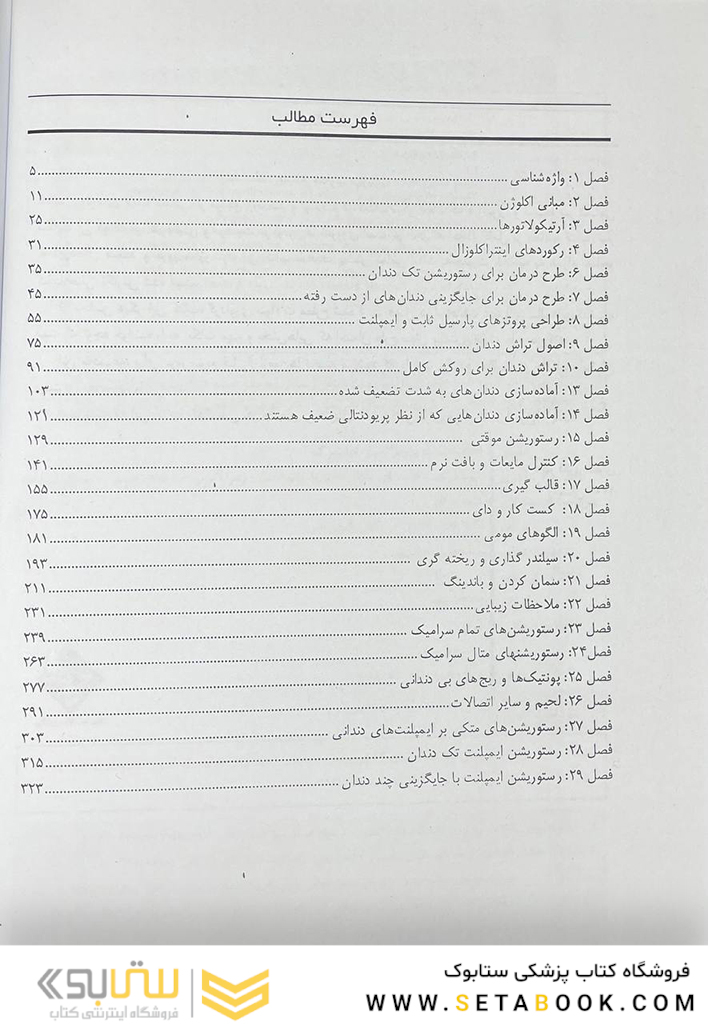 فهرست مطالب
فصل ۱: واژه‌شناسی ........ ۵
فصل ۲: مبانی اکلوژن ........ ۱۱
فصل ۳: آرتیکولاتورها ........ ۲۵
فصل ۴: رکوردهای اینتراکلوزال ........ ۳۱
فصل ۶: طرح درمان برای رستوریشن تک دندان ........ ۳۵
فصل ۷: طرح درمان برای جایگزینی دندان‌های از دست رفته ........ ۴۵
فصل ۸: طراحی پروتزهای پارسیل ثابت و ایمپلنت ........ ۵۵
فصل ۹: اصول تراش دندان ........ ۷۵
فصل ۱۰: تراش دندان برای روکش کامل ........ ۹۱
فصل ۱۳: آماده‌سازی دندان‌های به شدت تضعیف شده ........ ۱۰۳
فصل ۱۴: آماده‌سازی دندان‌هایی که از نظر پریودنتالی ضعیف هستند ........ ۱۲۱
فصل ۱۵: رستوریشن موقتی ........ ۱۲۹
فصل ۱۶: کنترل مایعات و بافت نرم ........ ۱۴۱
فصل ۱۷: قالب گیری ........ ۱۵۵
فصل ۱۸: کست کار و دای ........ ۱۷۵
فصل ۱۹: الگوهای مومی ........ ۱۸۱
فصل ۲۰: سیلندر گذاری و ریخته گری ........ ۱۹۳
فصل ۲۱: سمان کردن و باندینگ ........ ۲۱۱
فصل ۲۲: ملاحظات زیبایی ........ ۲۳۱
فصل ۲۳: رستوریشن‌های تمام سرامیک ........ ۲۳۹
فصل ۲۴: رستوریشنهای متال سرامیک ........ ۲۶۳
فصل ۲۵: پونتیک‌ها و ریج‌های بی دندانی ........ ۲۷۷
فصل ۲۶: لحیم و سایر اتصالات ........ ۲۹۱
فصل ۲۷: رستوریشن‌های متکی بر ایمپلنت‌های دندانی ........ ۳۰۳
فصل ۲۸: رستوریشن ایمپلنت تک دندان ........ ۳۱۵
فصل ۲۹: رستوریشن ایمپلنت با جایگزینی چند دندان ........ ۳۲۳
فروشگاه کتاب پزشکی ستابوک
WWW.SETABOOK.COM
ستابوک
فروشگاه اینترنتی کتاب